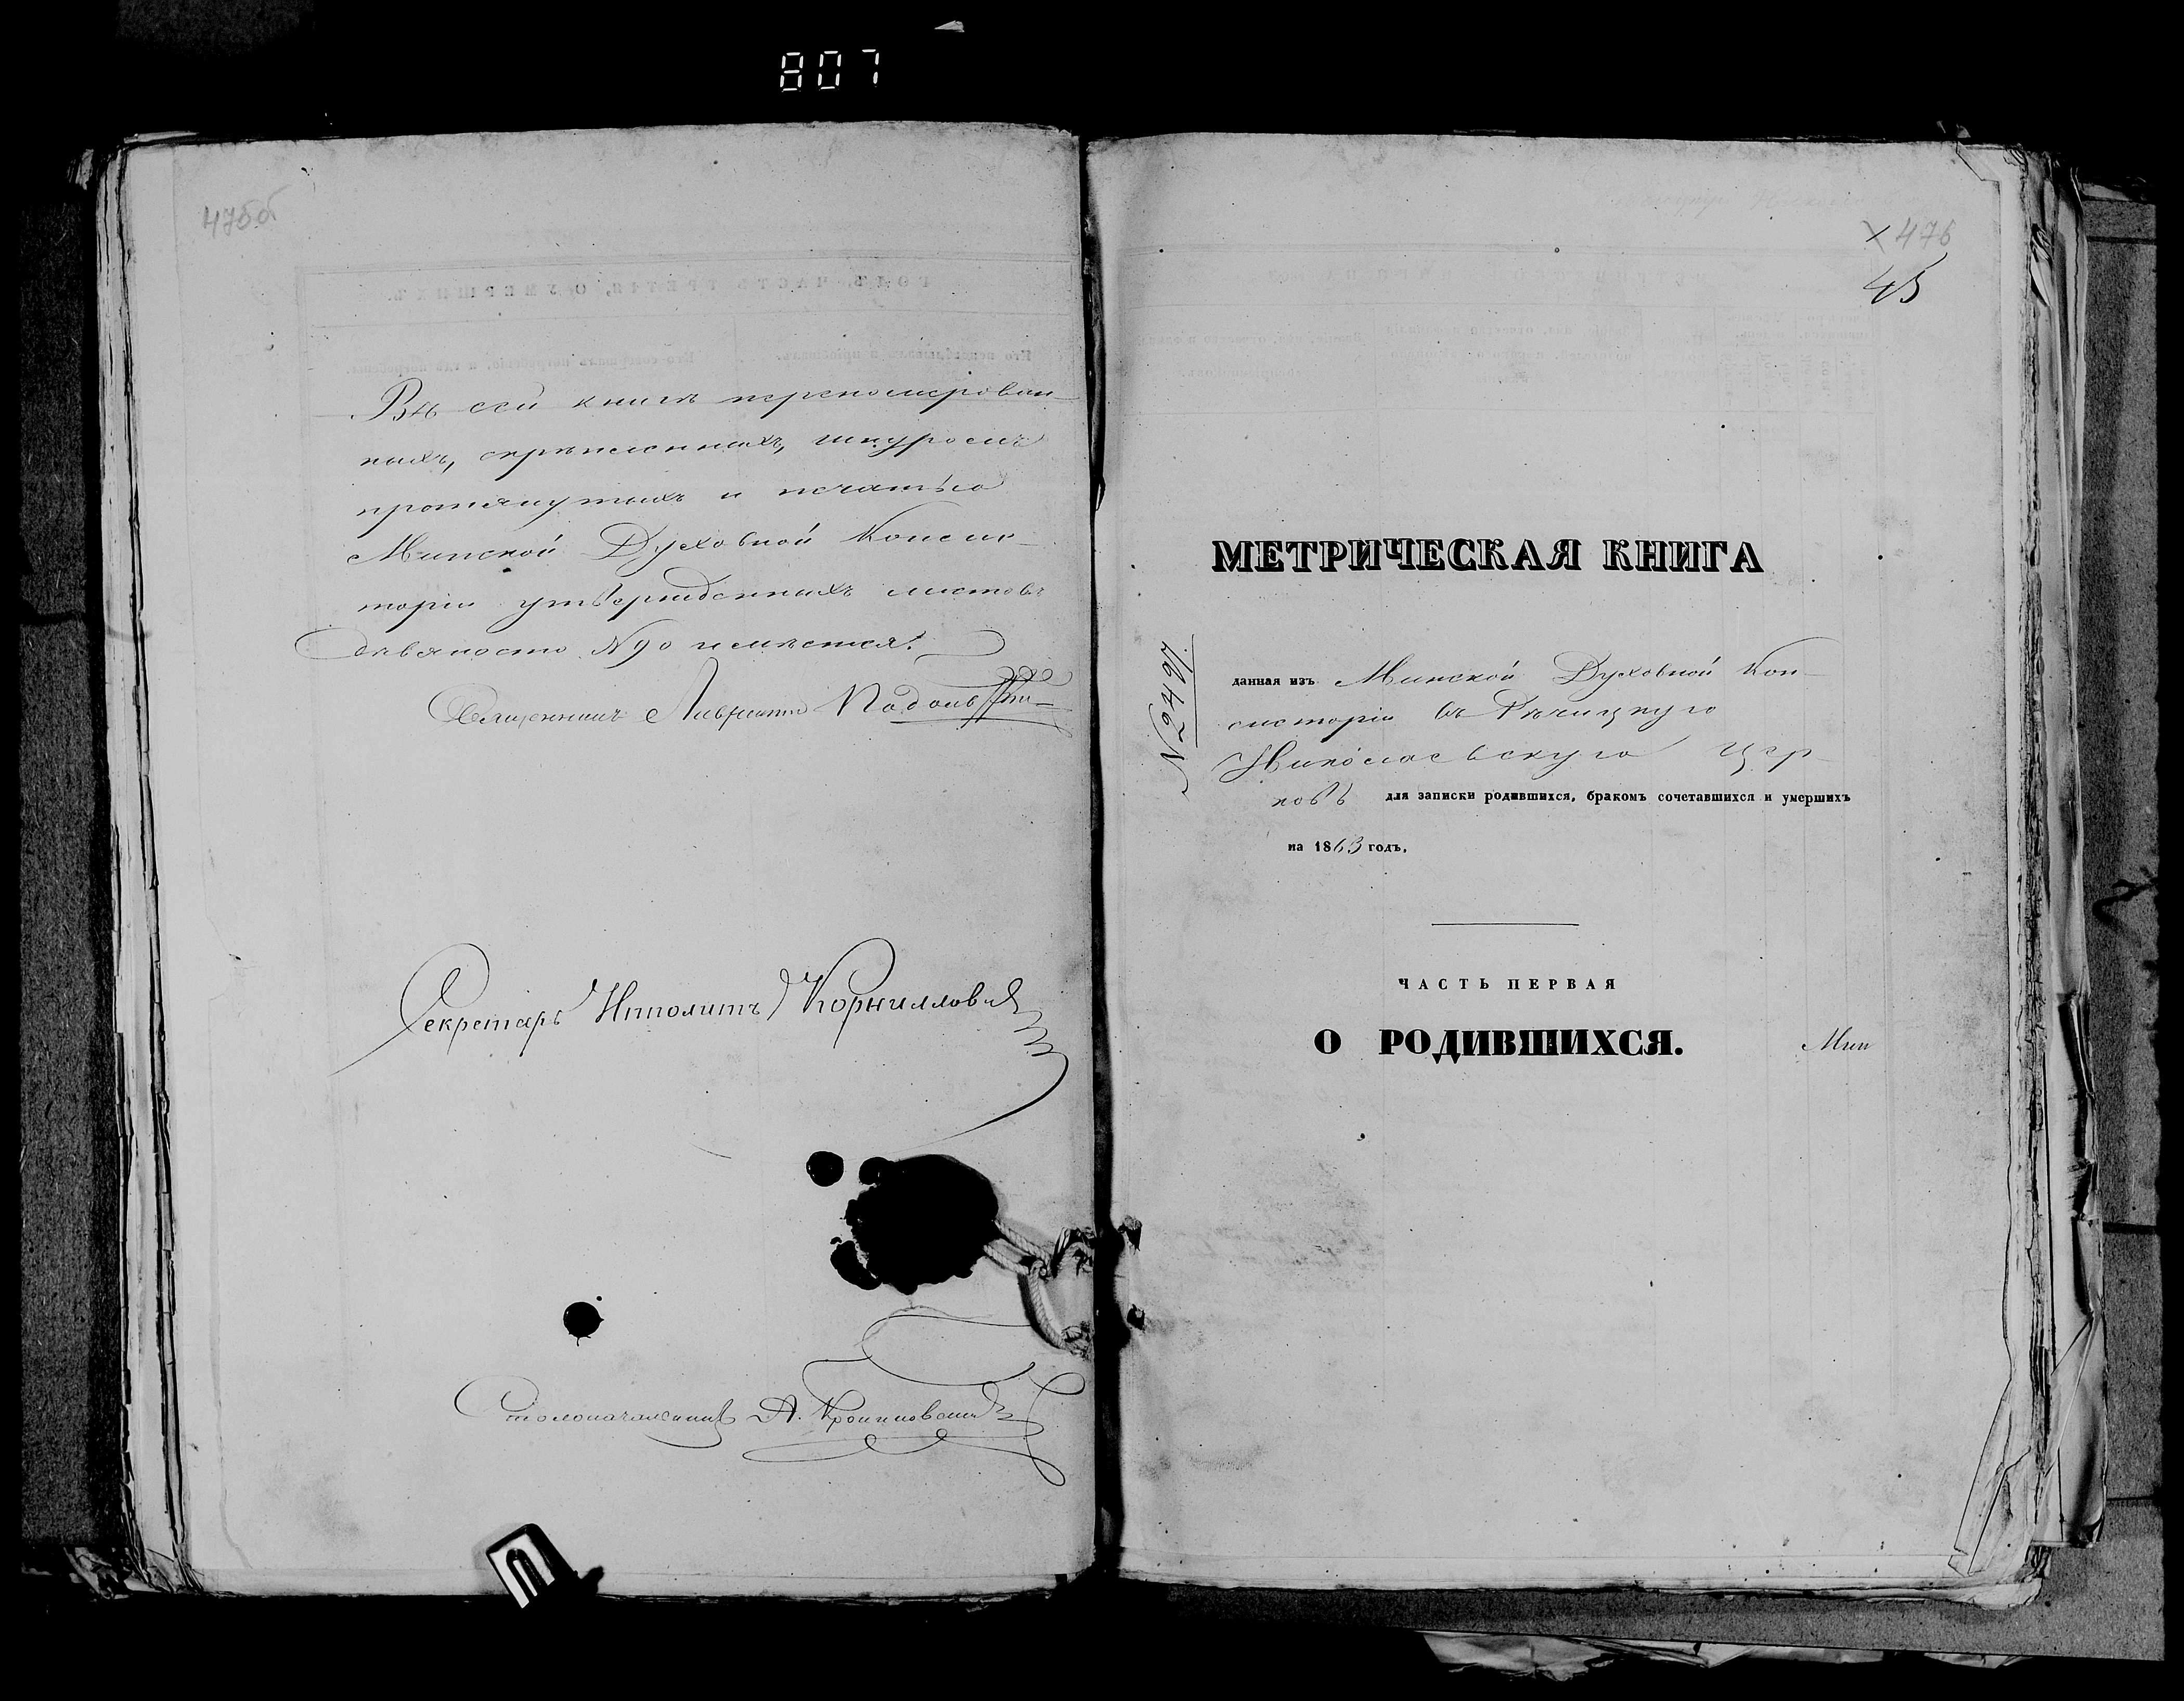 807
475об
Въ сей книгѣ перенумерован-
ныхъ, скрѣпленныхъ, шнуромъ
протянутыхъ и печатью
Минской Духовной Консис-
торіи утвержденныхъ листовъ
девяносто №90 имѣется.
Священникъ Лаврентій
Секретарь Ипполитъ Корнилловъ
Столоначальникъ А.
476
45
МЕТРИЧЕСКАЯ КНИГА
№ 2497.
данная изъ Минской Духовной Кон-
систоріи въ Рѣчицкую
Николаевскую Цер-
ковь для записки родившихся, бракомъ сочетавшихся и умершихъ
на 1863 годъ.
ЧАСТЬ ПЕРВАЯ
О РОДИВШИХСЯ.
Мин